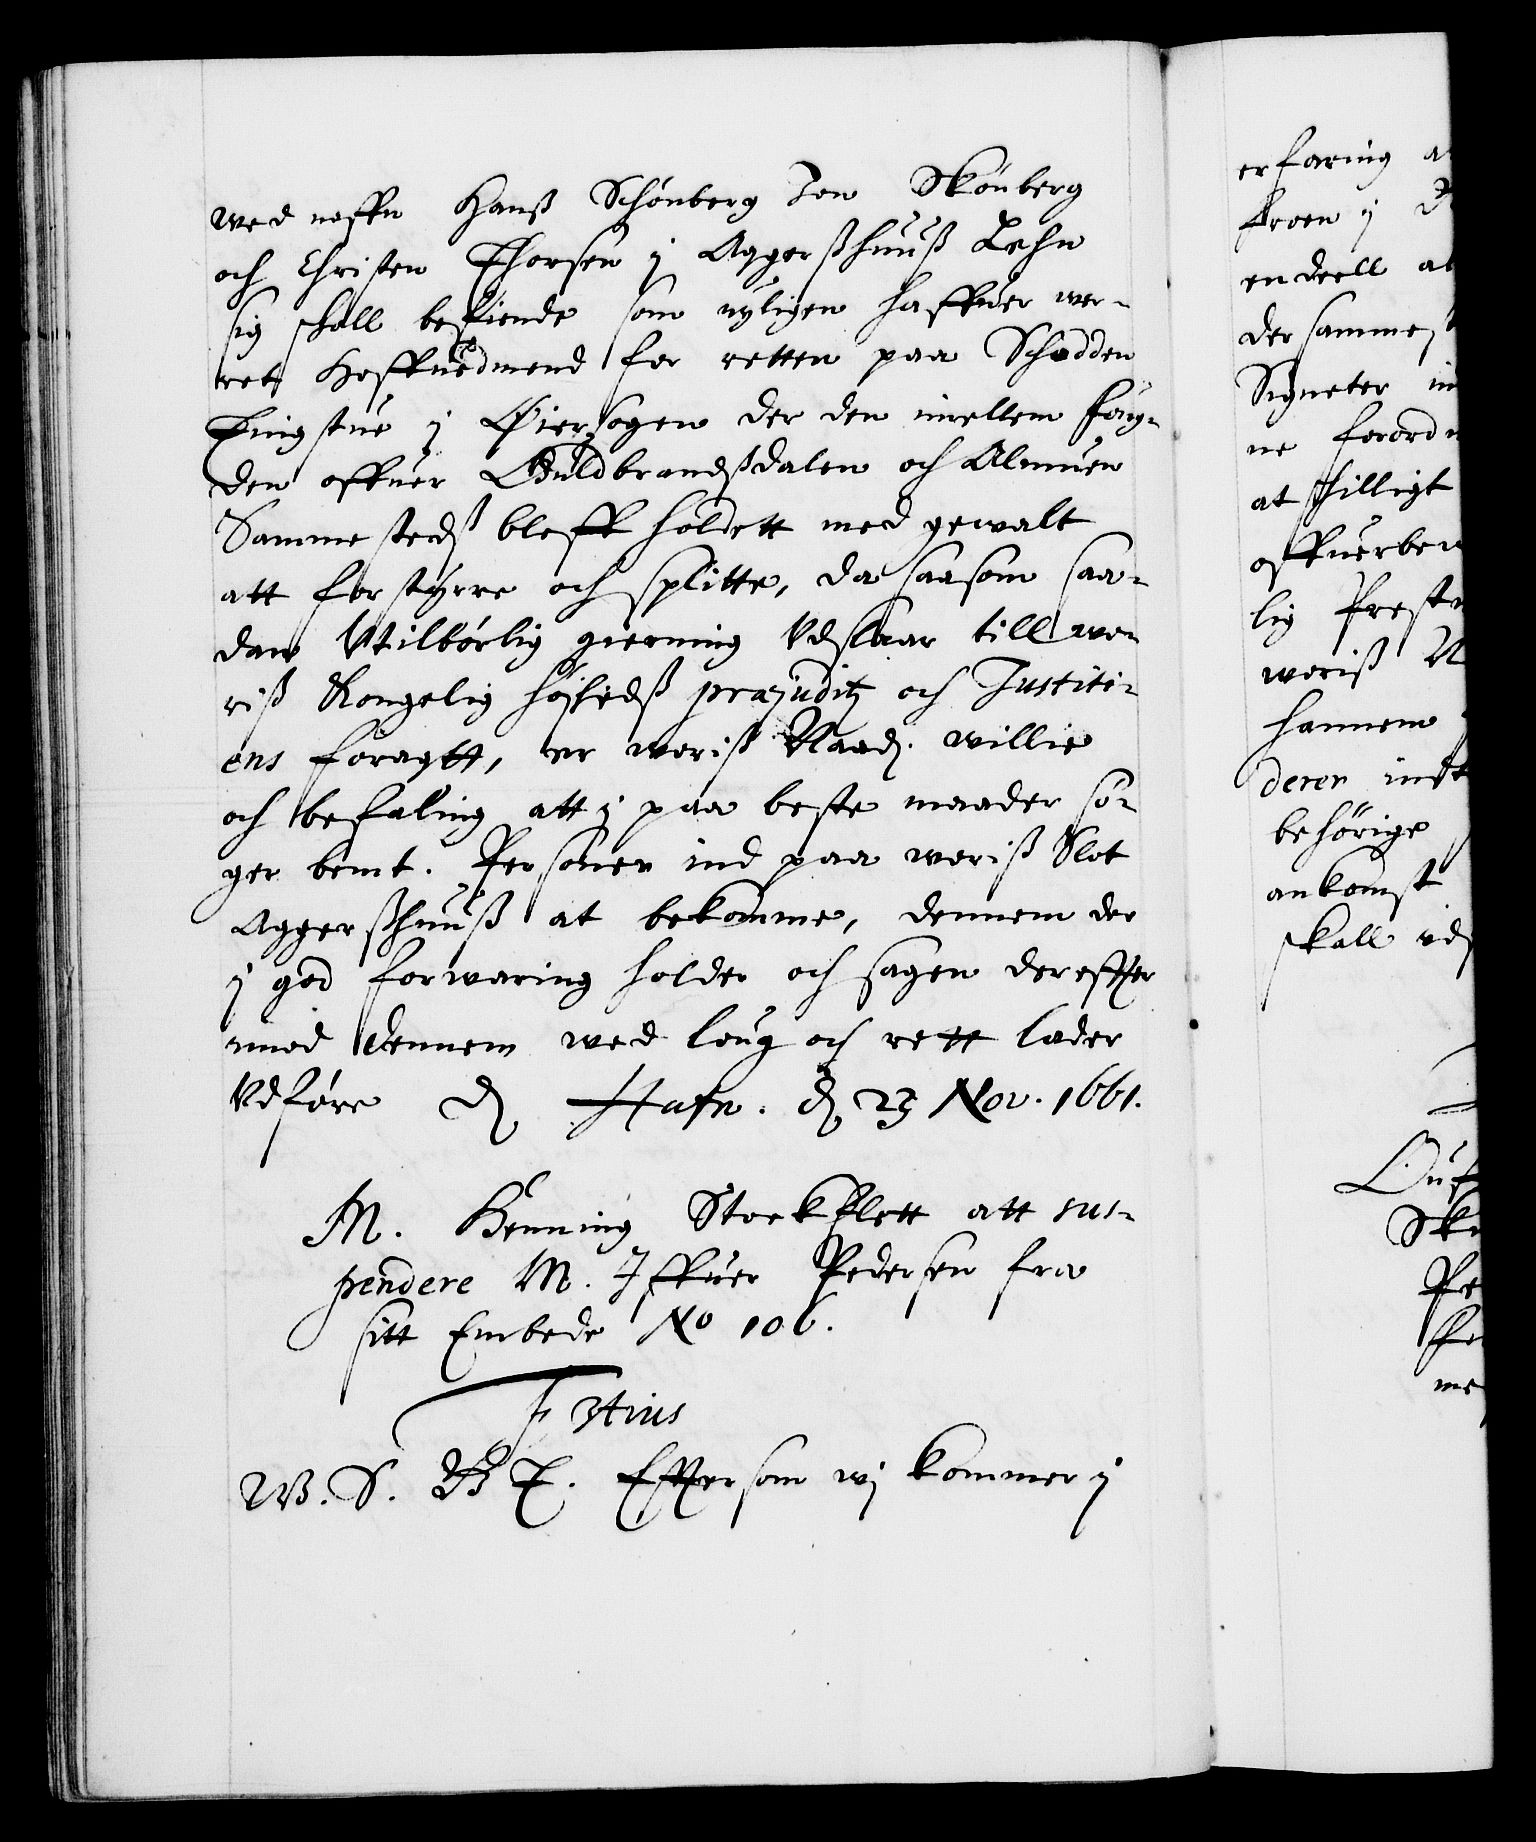 wed naffn Hanß Schönberg Jon Skönberg
och Christen Thorsen y Aggerßhuuß Lehn
sig skall befiende som nyligen haffuer wer-
ret Hoffuedmend for retten paa Schodden
Tingstue y Øier sogen der den imellem foug-
den offuer Guldbrandßdalen och Almuen
Sammestedß bleff holdett med gewalt
att forstyrre och splitte, da saasom saa-
dan Utilbörlig gierning Udslaar till wo-
riß Kongelig höjhedß præjuditz och Justiti-
ens foragtt, er woriß Naad. willie
och befaling att y paa beste maader sö-
ger bemt. Personer ind paa woriß Slot
Aggerßhuuß at bekomme, dennem der
y god forwaring holder och sagen derefter
imod dennem wed loug och rett lader
Udföre Hafn. d 23 Nov. 1661.
M. Henning Stockflett att sus-
pendere M. Iffuer Pedersen fra
sitt Embede No 106.
F 3tius
W. S. G T. Effter som wj kommer y
erfaring a
froen y
en deell at
der sammest
Signeter in
ne forordn
at skilligt
offuerbe
lig Prest
woriß N
hannem
derer ind
behörige
ankomst
skall ud
Ouf
Sk
Pe
me